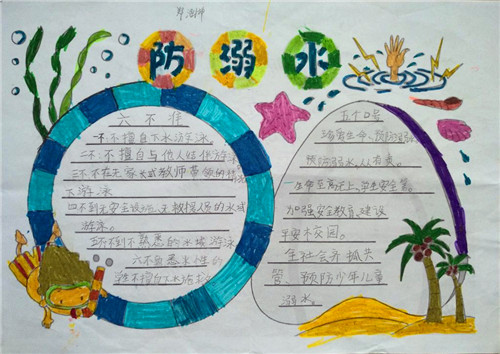 防溺水
六不准
一不:不擅自下水游泳。
二不:不擅自与他人结伴游泳
三不:不在无家长或教师带领的情况
下游泳
四不到无安全设施、无救援人员的水域
游泳。
五不到不熟悉的水域游泳
六不
性的
不擅自下水施救
五个口号
珍爱生命、预防溺水。
预防溺水,人人有责。
生命至高无上,安全
加强安全教育,建设
平安校园。
全社会齐抓共
管、预防少年儿童
溺水。